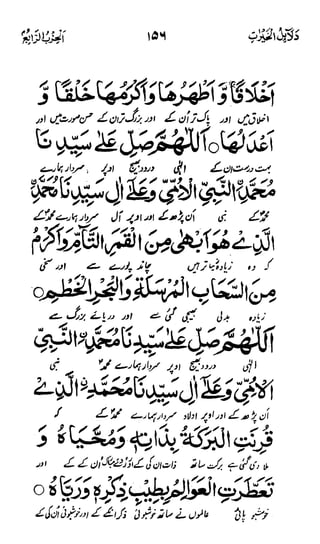 دَلَآئِلُ الْخَيْرَاتِ ۱۵۶ اَلْحِزْبُ الرَّابِعُ
اَخْلَاقًا وَّ اَطْهَرُهَا وَاَكْرَمُهَا خَلْقًا وَّ
اخلاق میں اور پاک تر اُن کے اور بزرگ تر ان کے حسن صورت میں اور
اَعْدَلُهَا ○ اَللّٰهُمَّ صَلِّ عَلٰى سَيِّدِنَا
بہت درست ان کے الٰہی درود بھیج اوپر سردار ہمارے
مُحَمَّدِ النَّبِيِّ الْاُمِّيِّ وَعَلٰى اٰلِ سَيِّدِنَا مُحَمَّدِ
محمد کے نبی اَن پڑھ کے اور اوپر آل سردار ہمارے محمد کے
الَّذِىْ هُوَ اَبْهٰى مِنَ الْقَمَرِ التَّآمِّ وَاَكْرَمُ
کہ وہ زیادہ ہیں چاند پورے سے اور سخی
مِنَ السَّحَابِ الْمُرْسَلَةِ وَالْبَحْرِ الْخَطْمِ ○
زیادہ بدلی بھیجی گئی سے اور دریائے بزرگ سے
اَللّٰهُمَّ صَلِّ عَلٰى سَيِّدِنَا مُحَمَّدِ النَّبِيِّ
الٰہی درود بھیج اوپر سردار ہمارے محمد نبی
الْاُمِّيِّ وَعَلٰى اٰلِ سَيِّدِنَا مُحَمَّدِ الَّذِىْ
اَن پڑھ کے اور اوپر اولاد سردار ہمارے محمد کے کہ
قُرِنَتِ الْبَرَكَةُ بِذَاتِهٖ وَ مَحْيَاهُ ○ وَ
ملا دی گئی ہے برکت ساتھ ذات ان کی کے اور ان کے کے اور
تَعَطَّرَتِ الْعَوَالِمُ بِطِيْبِ ذِكْرِهٖ وَرَيَّاهُ ○
خوشبو پائی عالموں نے ساتھ خوشبوئی ذکر انکے کے اور خوشبوئی ان کی کے